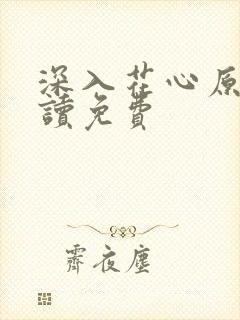 深入花心原
讀免費
霽夜塵